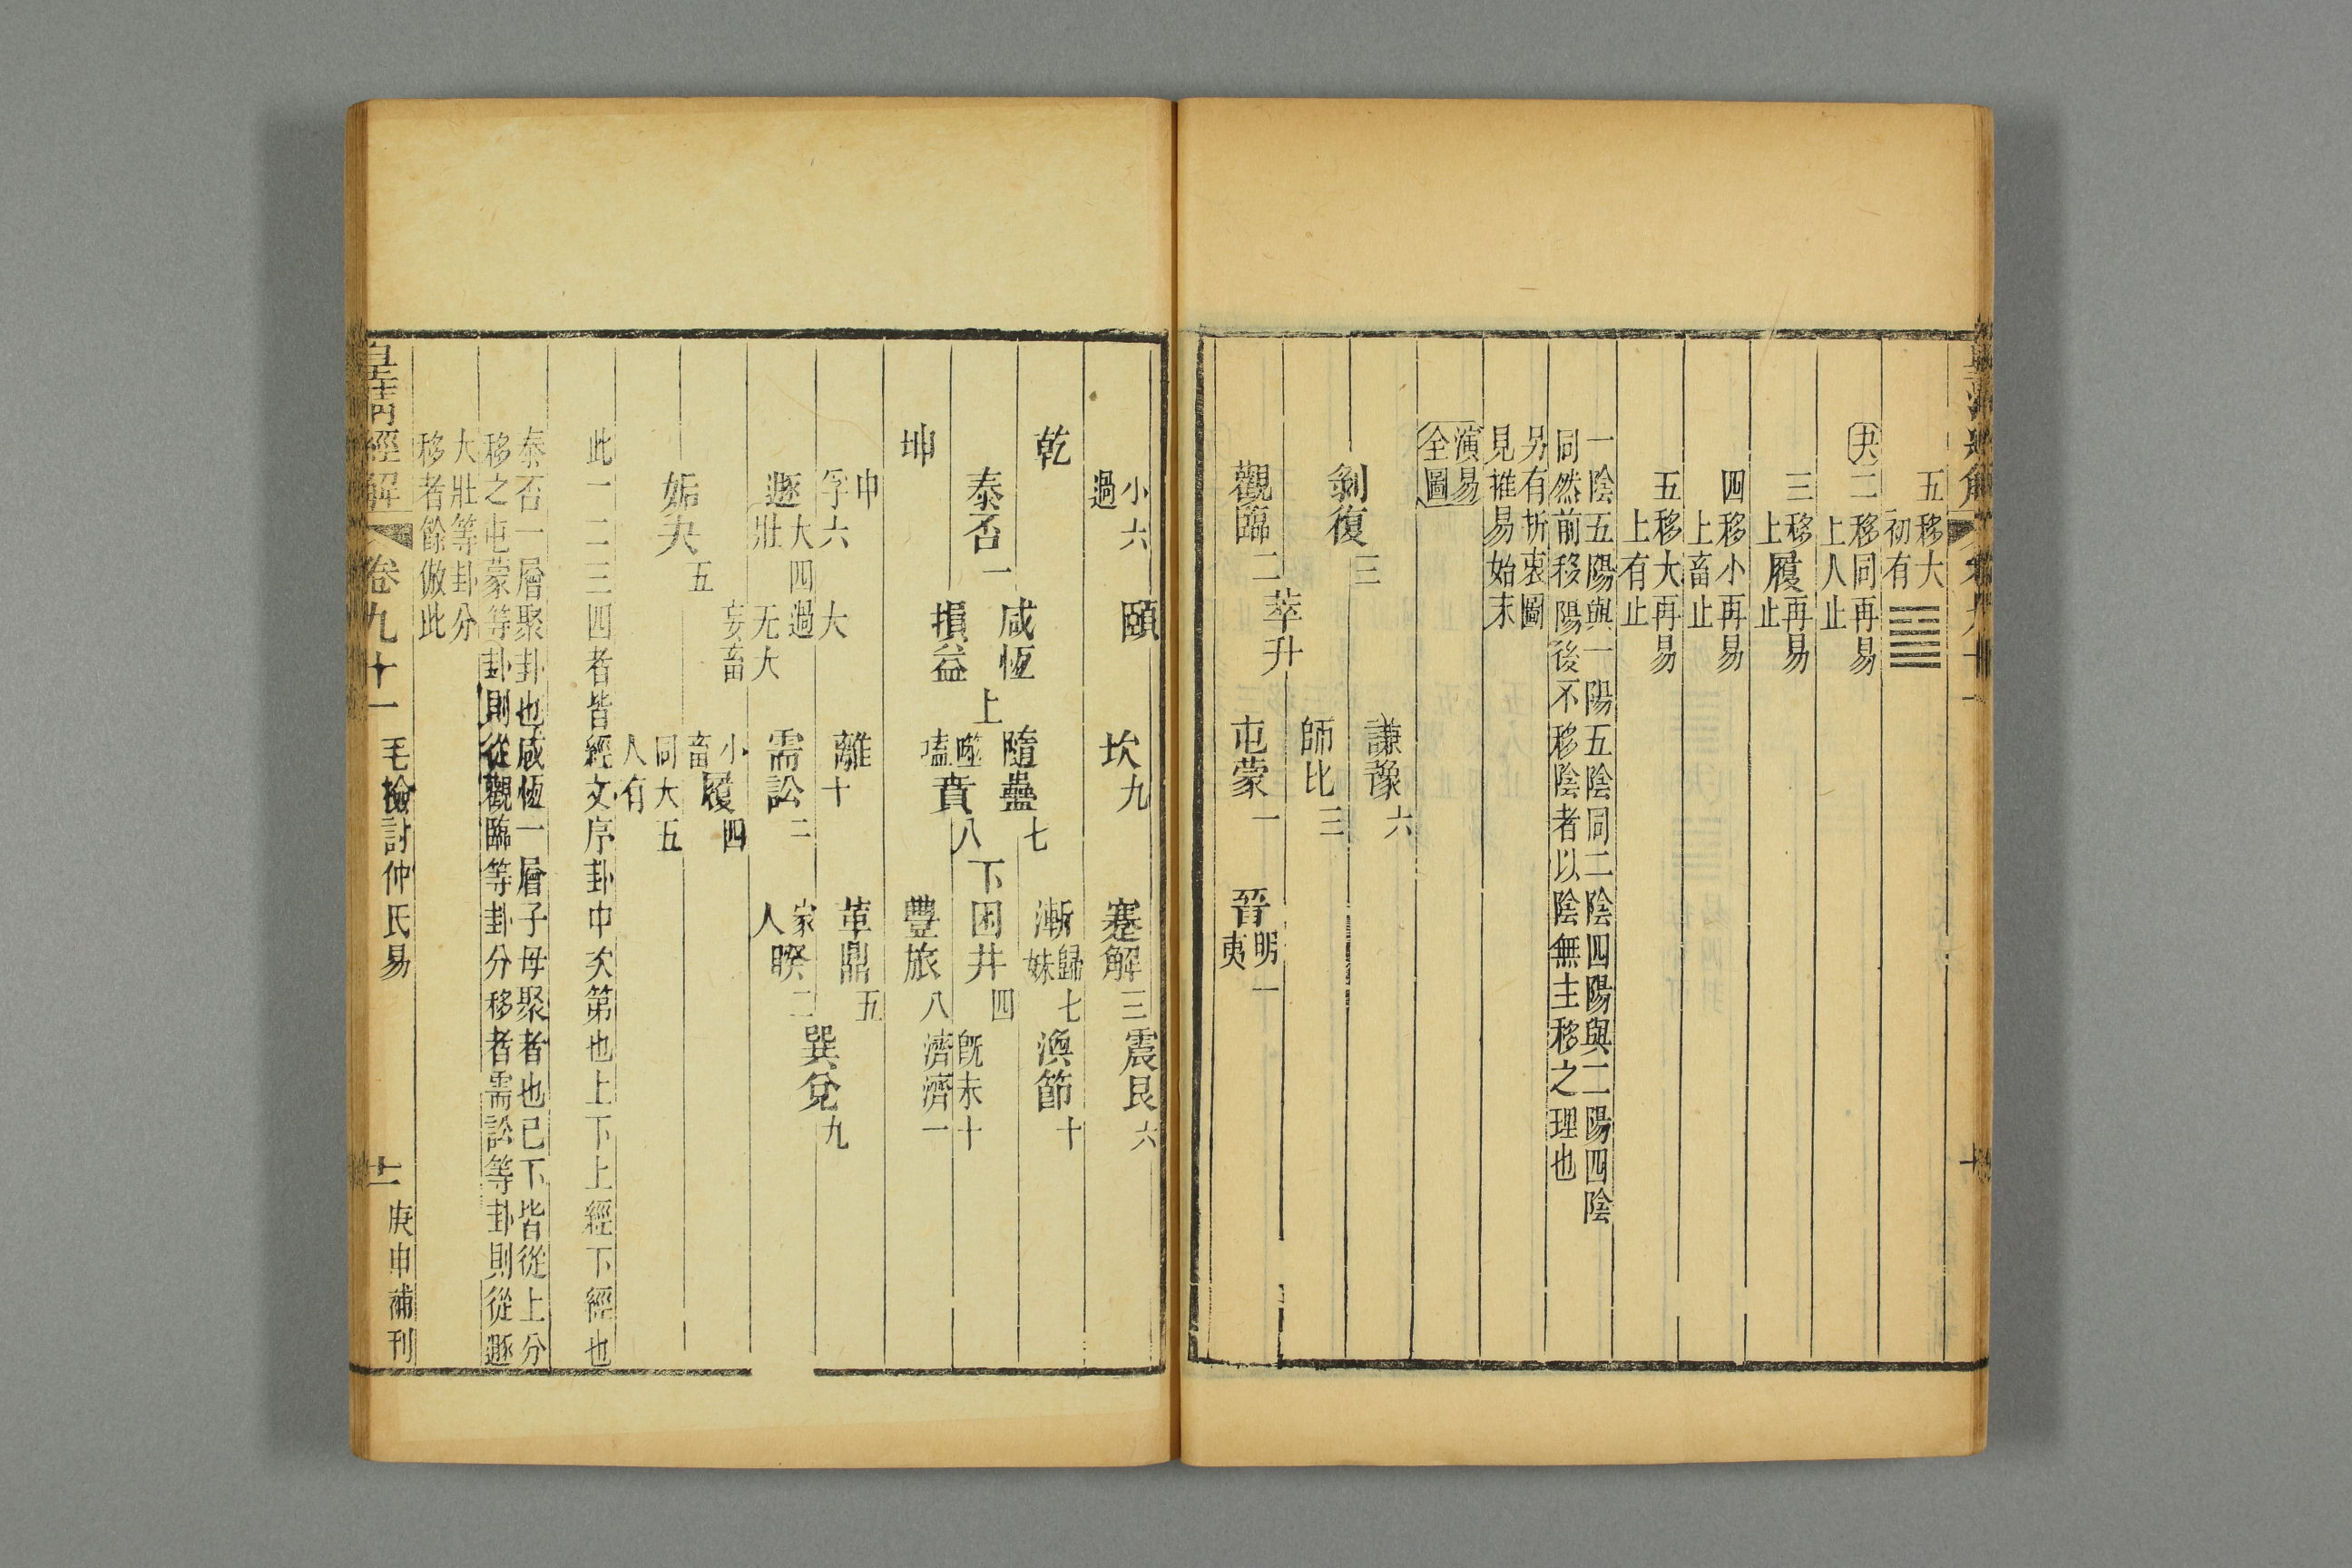 五移大
初有
夬二移同再易
上人止
三移再易
上履止
四移小再易
上畜止
五移大再易
上有止
一陰五陽與一陽五陰同二陰四陽與二陽四陰
同然前移陽後不移陰者以陰無主移之理也
另有折衷圖
見推易始末
演易
全圖
謙豫六
剝復三
師比三
觀臨二萃升
屯蒙一
晉明夷一
小過六
頤
坎九
蹇解三
震艮六
乾
咸恆
隨蠱七
漸歸妹七
渙節十
泰否一
上
下
困井四
坤
損益
噬嗑賁八
豐旅八
既濟未濟十一
中孚六
大過
離十
革鼎五
巽兌九
遯大壯四
无妄大畜
需訟二
家人睽二
姤夬五
小畜履四
同人大有五
此一二三四者皆經文序卦中次第也上下上經下經也
泰否一層聚卦也咸恆一層子母聚者也已下皆從上分
移之屯蒙等卦則從觀臨等卦分移者需訟等卦則從遯
大壯等卦分
移者餘倣此
皇清經解
卷九十一
毛檢討仲氏易
十一
庚申補刊